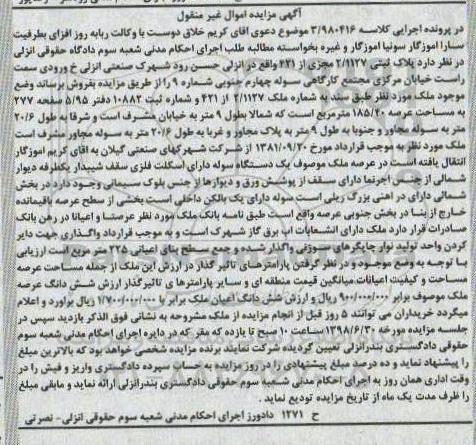 آگهی مزایده اموال غیر منقول
در پرونده اجرایی کلاسه ۳/۹۸۰۴۱۶ موضوع دعوی آقای کریم خلاق دوست با وکالت ربابه روزه افزای بطرفیت
سارا آموزگار سونیا آموزگار و غیره بخواسته مطالبه طلب اجرای احکام مدنی شعبه سوم دادگاه حقوقی انزلی
در نظر دارد پلاک ثبتی ۲/۱۱۲۷ مجزی از ۴۲۱ واقع در انزلی حسن رود شهرک صنعتی انزلی خ ورودی سمت
راست خیابان مرکزی مجتمع کارگاهی سوله چهارم جنوبی شماره ۹ را از طریق مزایده بفروش برساند وضع
موجود ملک مورد نظر طبق سند به شماره ملک ۲/۱۱۲۷ از ۴۲۱ و شماره ثبت ۱۰۸۸۲ دفتر ۵/۹۵ صفحه ۲۷۷
به مساحت عرصه ۱۸۵/۴۰ مترمربع است که شمالا بطول ۹ متر به خیابان مشرف است و شرقا به طول ۲۰/۶
متر به سوله مجاور و جنوبا به طول ۹ متر به پلاک مجاور و غربا به طول ۲۰/۶ متر به سوله مجاور مشرف است
ملک مورد نظر به موجب قرارداد مورخ ۱۳۸۱/۰۹/۲۰ از شرکت شهرکهای صنعتی گیلان به اقای کریم آموزگار
انتقال یافته است در عرصه ملک موصوف یک دستگاه سوله دارای اسکلت فلزی سقف شیبدار یکطرفه دیوار
شمالی از جنس اجرنما دارای سقف از پوشش ورق و دیوارها از جنس بلوک سیمانی وجود دارد در بخش
شمالی دارای در اهنی بزرگ ریلی است سوله دارای یک بالکن داخلی است بخشی از سطح عرصه باقیمانده
خارج از بنا در بخش جنوبی عرصه واقع است طبق نامه بانک ملک مورد نظر عرصتا و اعیانا در رهن بانک
صادرات قرار دارد ملک دارای انشعابات اب برق گاز شهرک است و به موجب قرارداد واگذاری جهت دایر
کردن واحد تولید نوار چاپگرهای سوزنی واگذار شده و جمع سطح بنای اعیانی ۲۲۵ متر مربع است ارزیابی
با توجه به وضع موجود و در نظر گرفتن پارامترهای تاثیر گذار در ارزش این ملک از جمله مساحت عرصه
مساحت و کیفیت اعیانات میانگین قیمت منطقه ای و سایر پارامتر های تاثیر گذار ارزش شش دانگ عرصه
ملک موصوف برابر ۹۰۰/۰۰۰/۰۰۰ ریال و ارزش شش دانگ اعیان ملک برابر با ۱/۷۰۰/۰۰۰/۰۰۰ ریال براورد و اعلام
میگردد خریداران می توانند ۵ روز قبل از انجام مزایده از ملک مشروحه به نشانی فوق الذکر بازدید سپس در
جلسه مزایده مورخه ۱۳۹۸/۶/۳۰ ساعت ۱۰ صبح تا یازده که مقر که در دایره اجرای احکام مدنی شعبه سوم
حقوقی دادگستری بندرانزلی تعیین گردیده شرکت نمایند برنده مزایده شخصی خواهد بود که بالاترین مبلغ
را پیشنهاد نماید و ده درصد مبلغ پیشنهادی را در روز مزایده به حساب سپرده دادگستری واریز و فیش را در
وقت اداری همان روز به اجرای احکام مدنی شعبه سوم حقوقی دادگستری بندرانزلی ارائه نماید و مابقی مبلغ
را ظرف مدت یک ماه از تاریخ مزایده تودیع نماید .
ح ۱۲۷۱ دادورز اجرای احکام مدنی شعبه سوم حقوقی انزلی- نصرتی